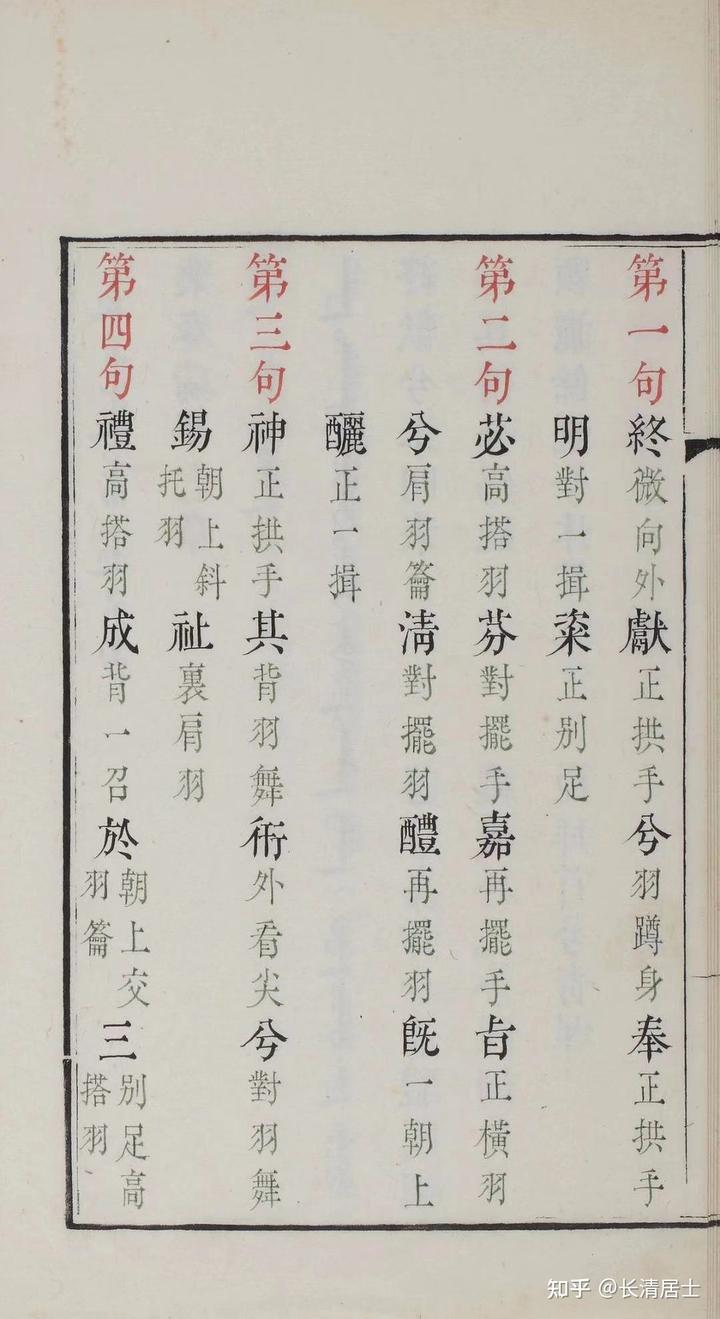 第一句終微向外獻正拱手兮羽蹲身奉正拱手
明對一揖粢正别足
第二句苾高搭羽芬對擺手嘉再擺手旨正橫羽
兮肩羽籥淸對擺羽醴再擺羽旣一朝上
釃正一揖
第三句神正拱手其背羽舞衎外看尖兮對羽舞
錫朝上斜托羽祉裏肩羽
第四句禮高搭羽成背一召於朝上交羽籥三别足高搭羽
知乎 @长清居士